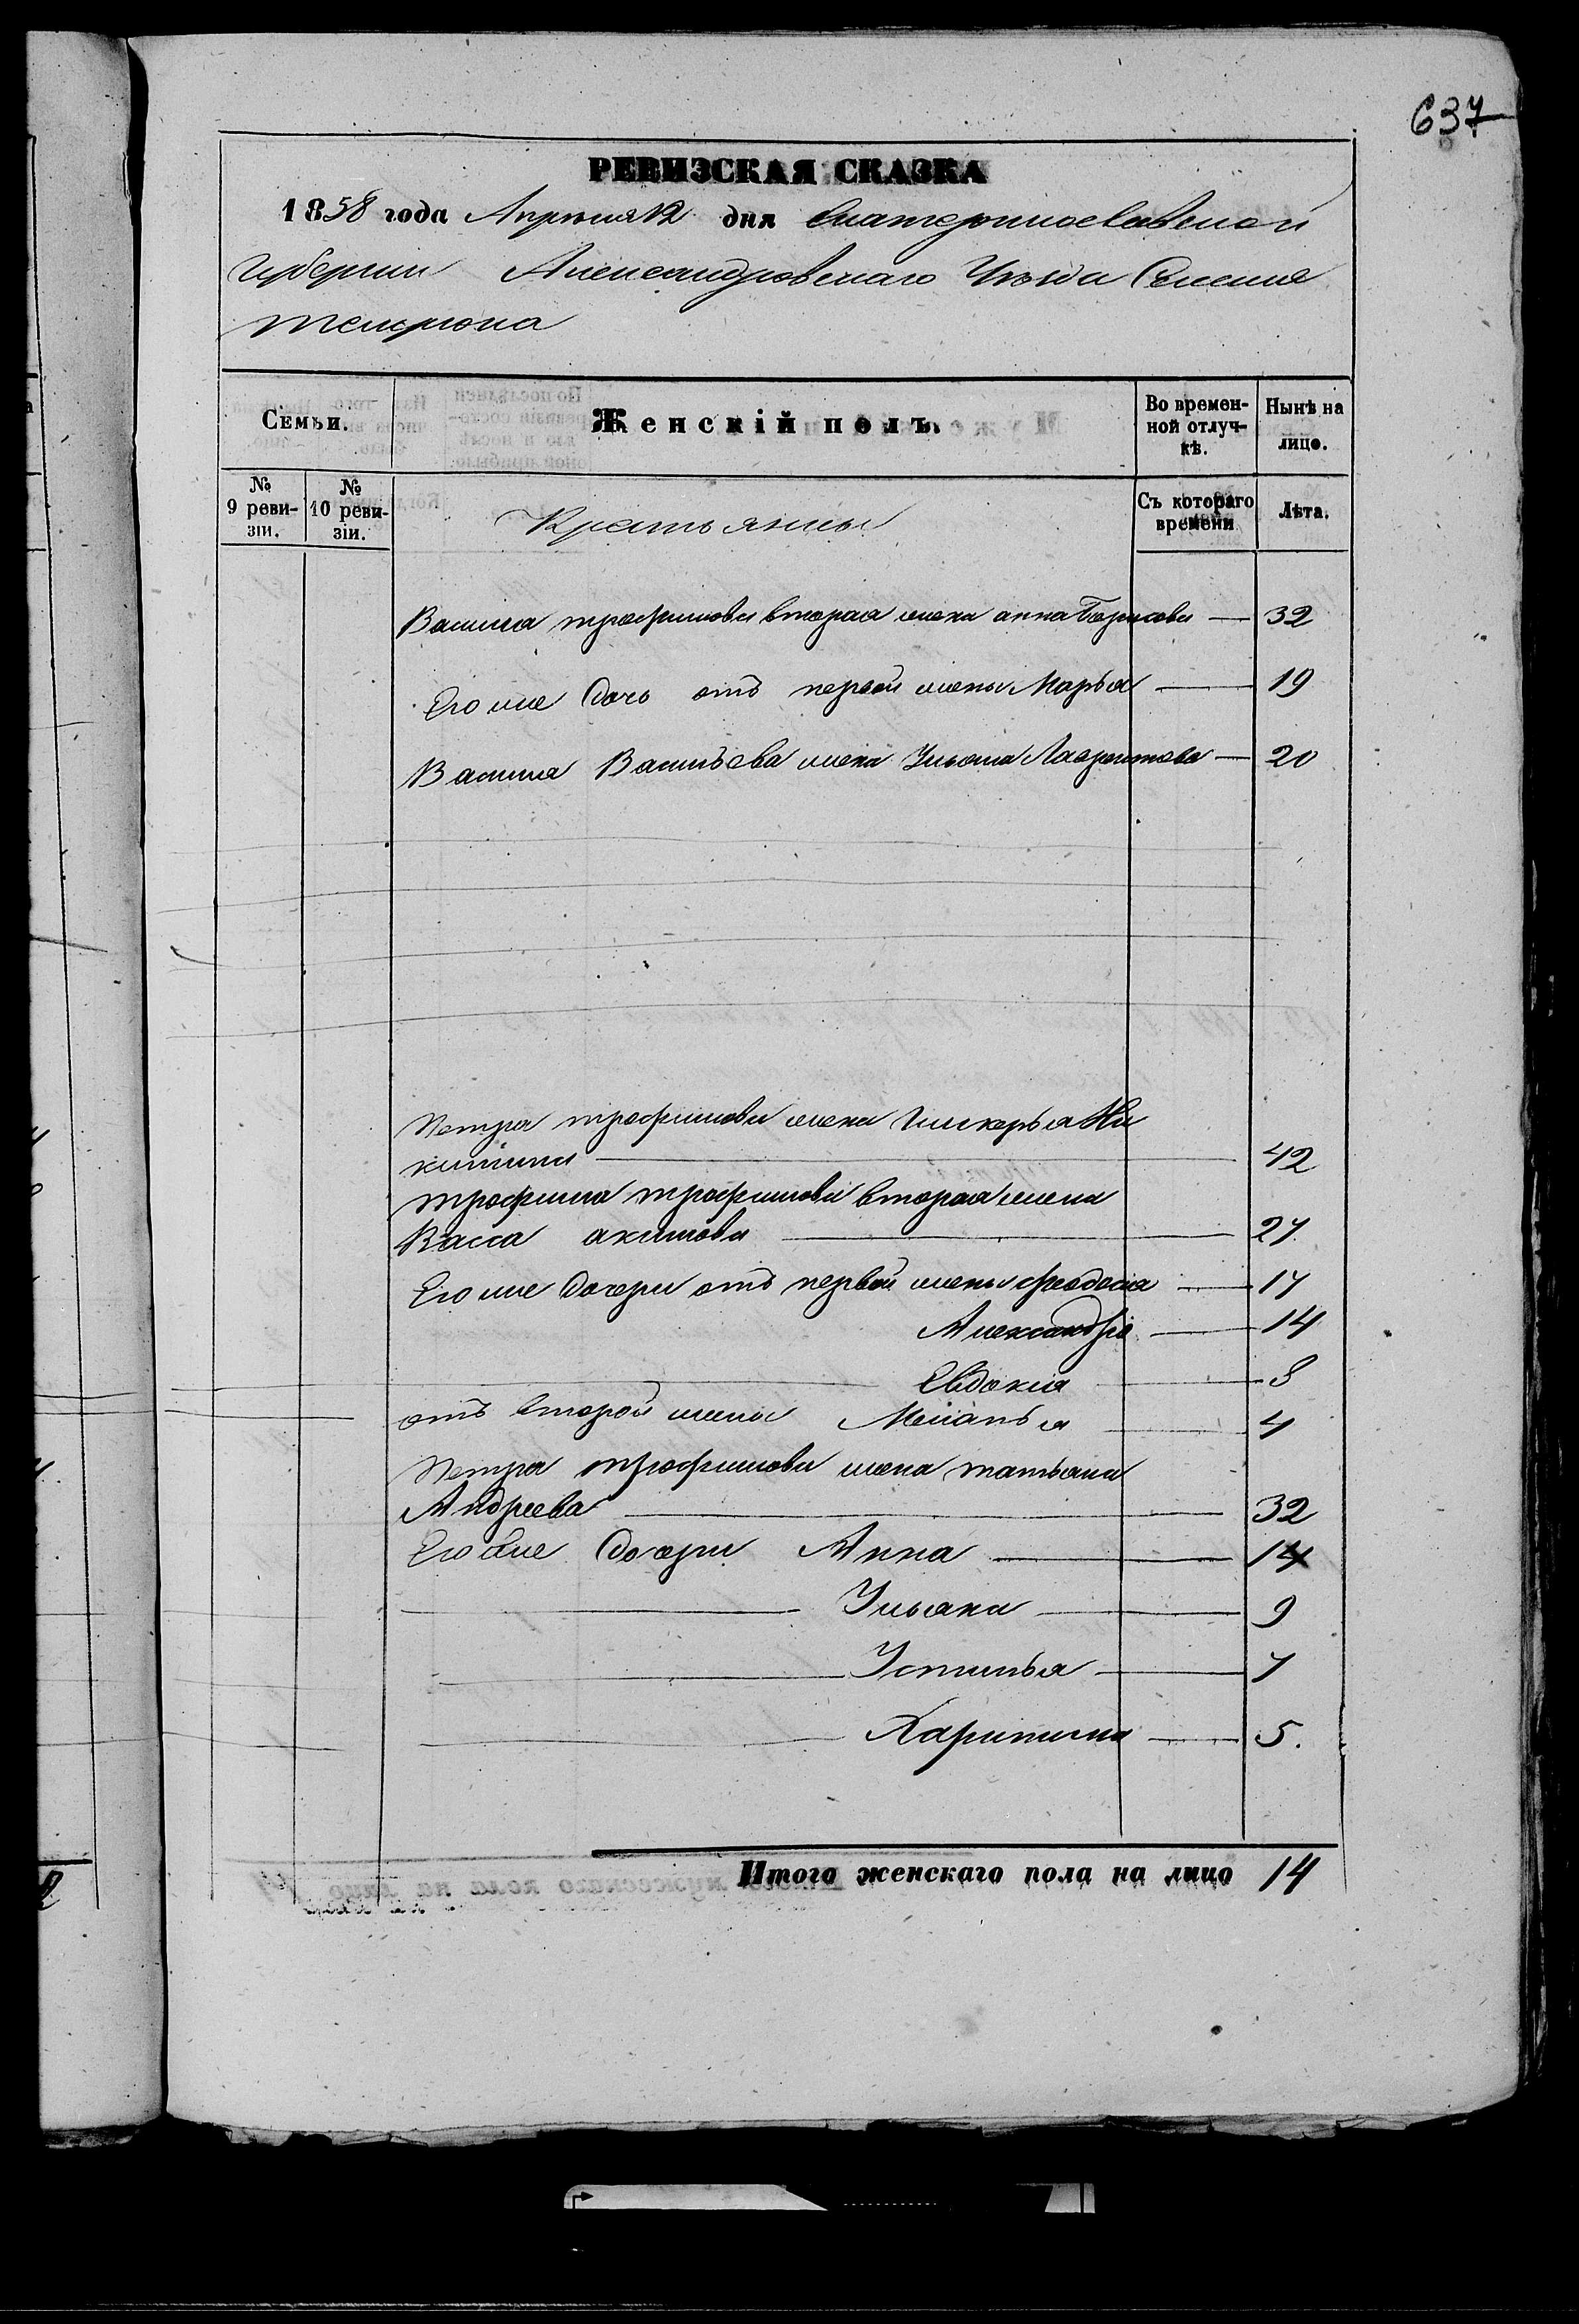 637
РЕВИЗСКАЯ СКАЗКА
1858 года Апреля 12 дня Екатеринославской
Губернии Александровскаго Уезда Селения
Темрюка
Семьи.
Женскій полъ.
Во времен-
ной отлуч-
кѣ.
Нынѣ на
лицо.
№
9 реви-
зіи.
№
10 реви-
зіи.
Крестьяне
Съ котораго
времени
Лѣта.
Василия трофимова вторая жена анна Борисова — 32
Его же дочь отъ первой жены Марья — 19
Василия Васильева жена Ульяна Лаврентьева — 20
Петра трофимова жена Гликерья Ни
китина — 42
трофима трофимова вторая жена
Васса акимова — 27
Его же дочери отъ первой жены Феодосія — 17
Александра — 14
Евдокия — 8
отъ второй жены Меланья — 4
Петра трофимова жена татьяна
Андреева — 32
Его же дочери Анна — 14
Ульяна — 9
Устинья — 7
Харитина — 5.
Итого женскаго пола на лицо 14